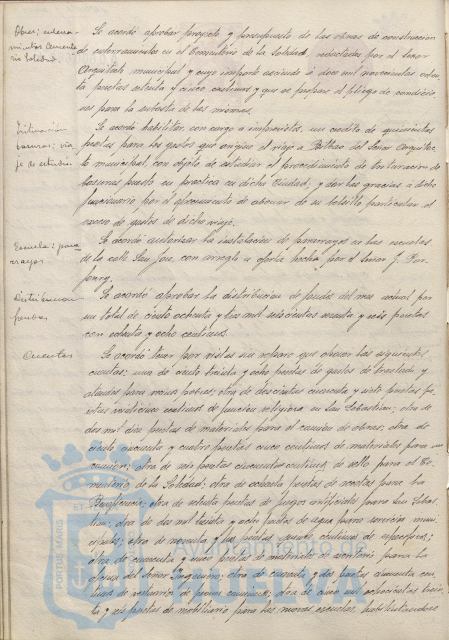 Obras; enterra-
mientos Cemente-
rio Soledad.
Se acordó aprobar proyecto y presupuesto de las obras de construccion
de enterramientos en el Cementerio de la Soledad, redactados por el Señor
Arquitecto municipal y cuyo importe asciende á doce mil novecientas
pesetas ochenta y cinco centimos y que se prepare el pliego de condicio-
nes para la subasta de las mismas.
basuras; via-
je de estudio.
Se acordó habilitar con cargo á imprevistos, un credito de quinientas
pesetas para los gastos que origine el viaje á Bilbao del Señor Arquitec-
to municipal, con objeto de estudiar el procedimiento de
basuras puesto en practica en dicha Ciudad, y dar las gracias á dicho
funcionario por el ofrecimiento de abonar de su bolsillo particular el
exceso de gastos de dicho viaje.
Escuelas; para-
rrayos.
Se acordó autorizar la instalacion de pararrayos en las escuelas
de la calle San Jose, con arreglo á oferta hecha por el Señor J.
Distribucion
fondos
Se acordó aprobar la distribucion de fondos del mes actual por
un total de ciento ochenta y tres mil seiscientas y seis pesetas
con ochenta y ocho centimos.
Cuentas
Se acordó tener por vistas sin reparo que ofrecer las siguientes
cuentas; una de ciento treinta y ocho pesetas de gastos de traslado y
ataudes para pobres; otra de doscientas cincuenta y siete pesetas
centimos de funcion religiosa en San Sebastian; otra de
dos mil dos pesetas de materiales para el camion de obras; otra de
ciento cincuenta y cuatro pesetas cinco centimos de materiales para un
camion; otra de seis pesetas cincuenta centimos, de sello para el Ce-
menterio de la Soledad; otra de ochenta pesetas de recetas para la
Beneficencia; otra de setenta pesetas de fuegos artificiales para San Sebas-
tian; otra de dos mil treinta y ocho pesetas de agua para servicios muni-
cipales; otra de noventa y tres pesetas centimos de
otra de cincuenta y cinco pesetas de material de escritorio para la
oficina del Señor Ingeniero; otra de cuarenta y dos pesetas cincuenta cen-
timos de; otra de cinco mil ochocientas trein-
ta y seis pesetas de mobiliario para las nuevas escuelas, habilitandose
PORTUS MARIS
ET
Ayuntamiento